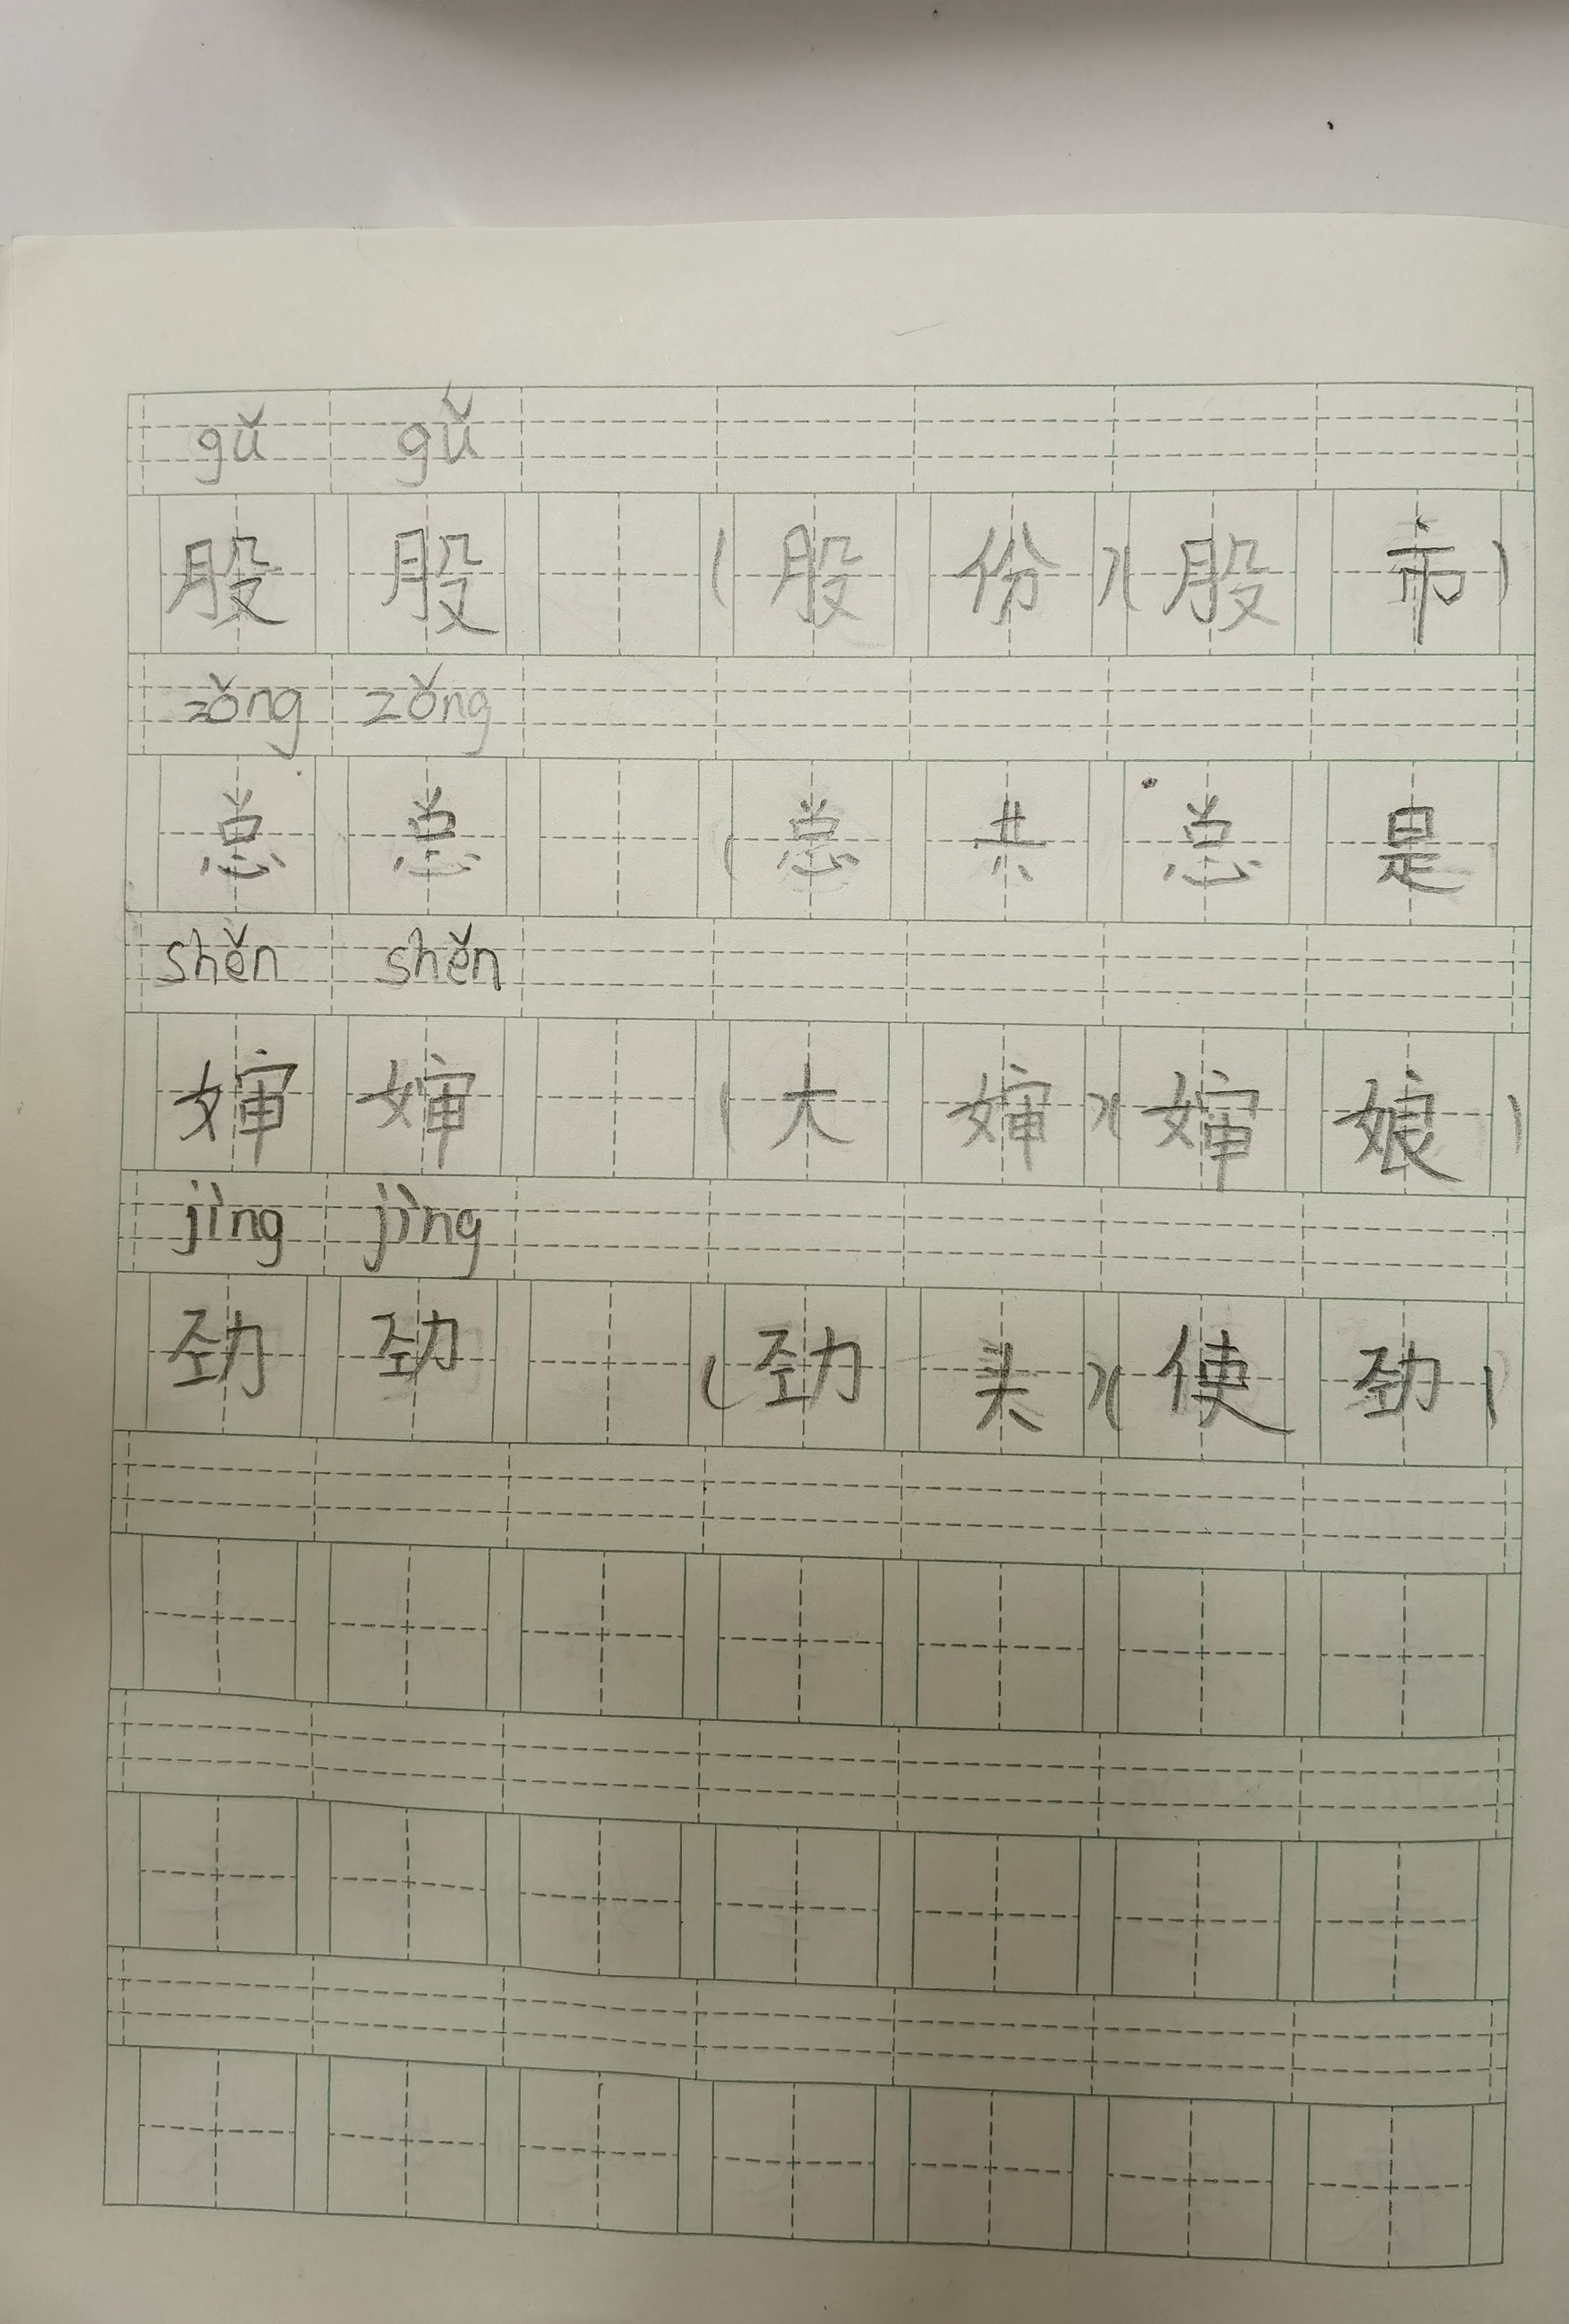 gǔ gǔ
股 股 (股份)(股市)
zǒng zǒng
总 总 (总共 总是
shěn shěn
婶 婶 (大婶)(婶娘)
jìng jìng
劲 劲 (劲头)(使劲)